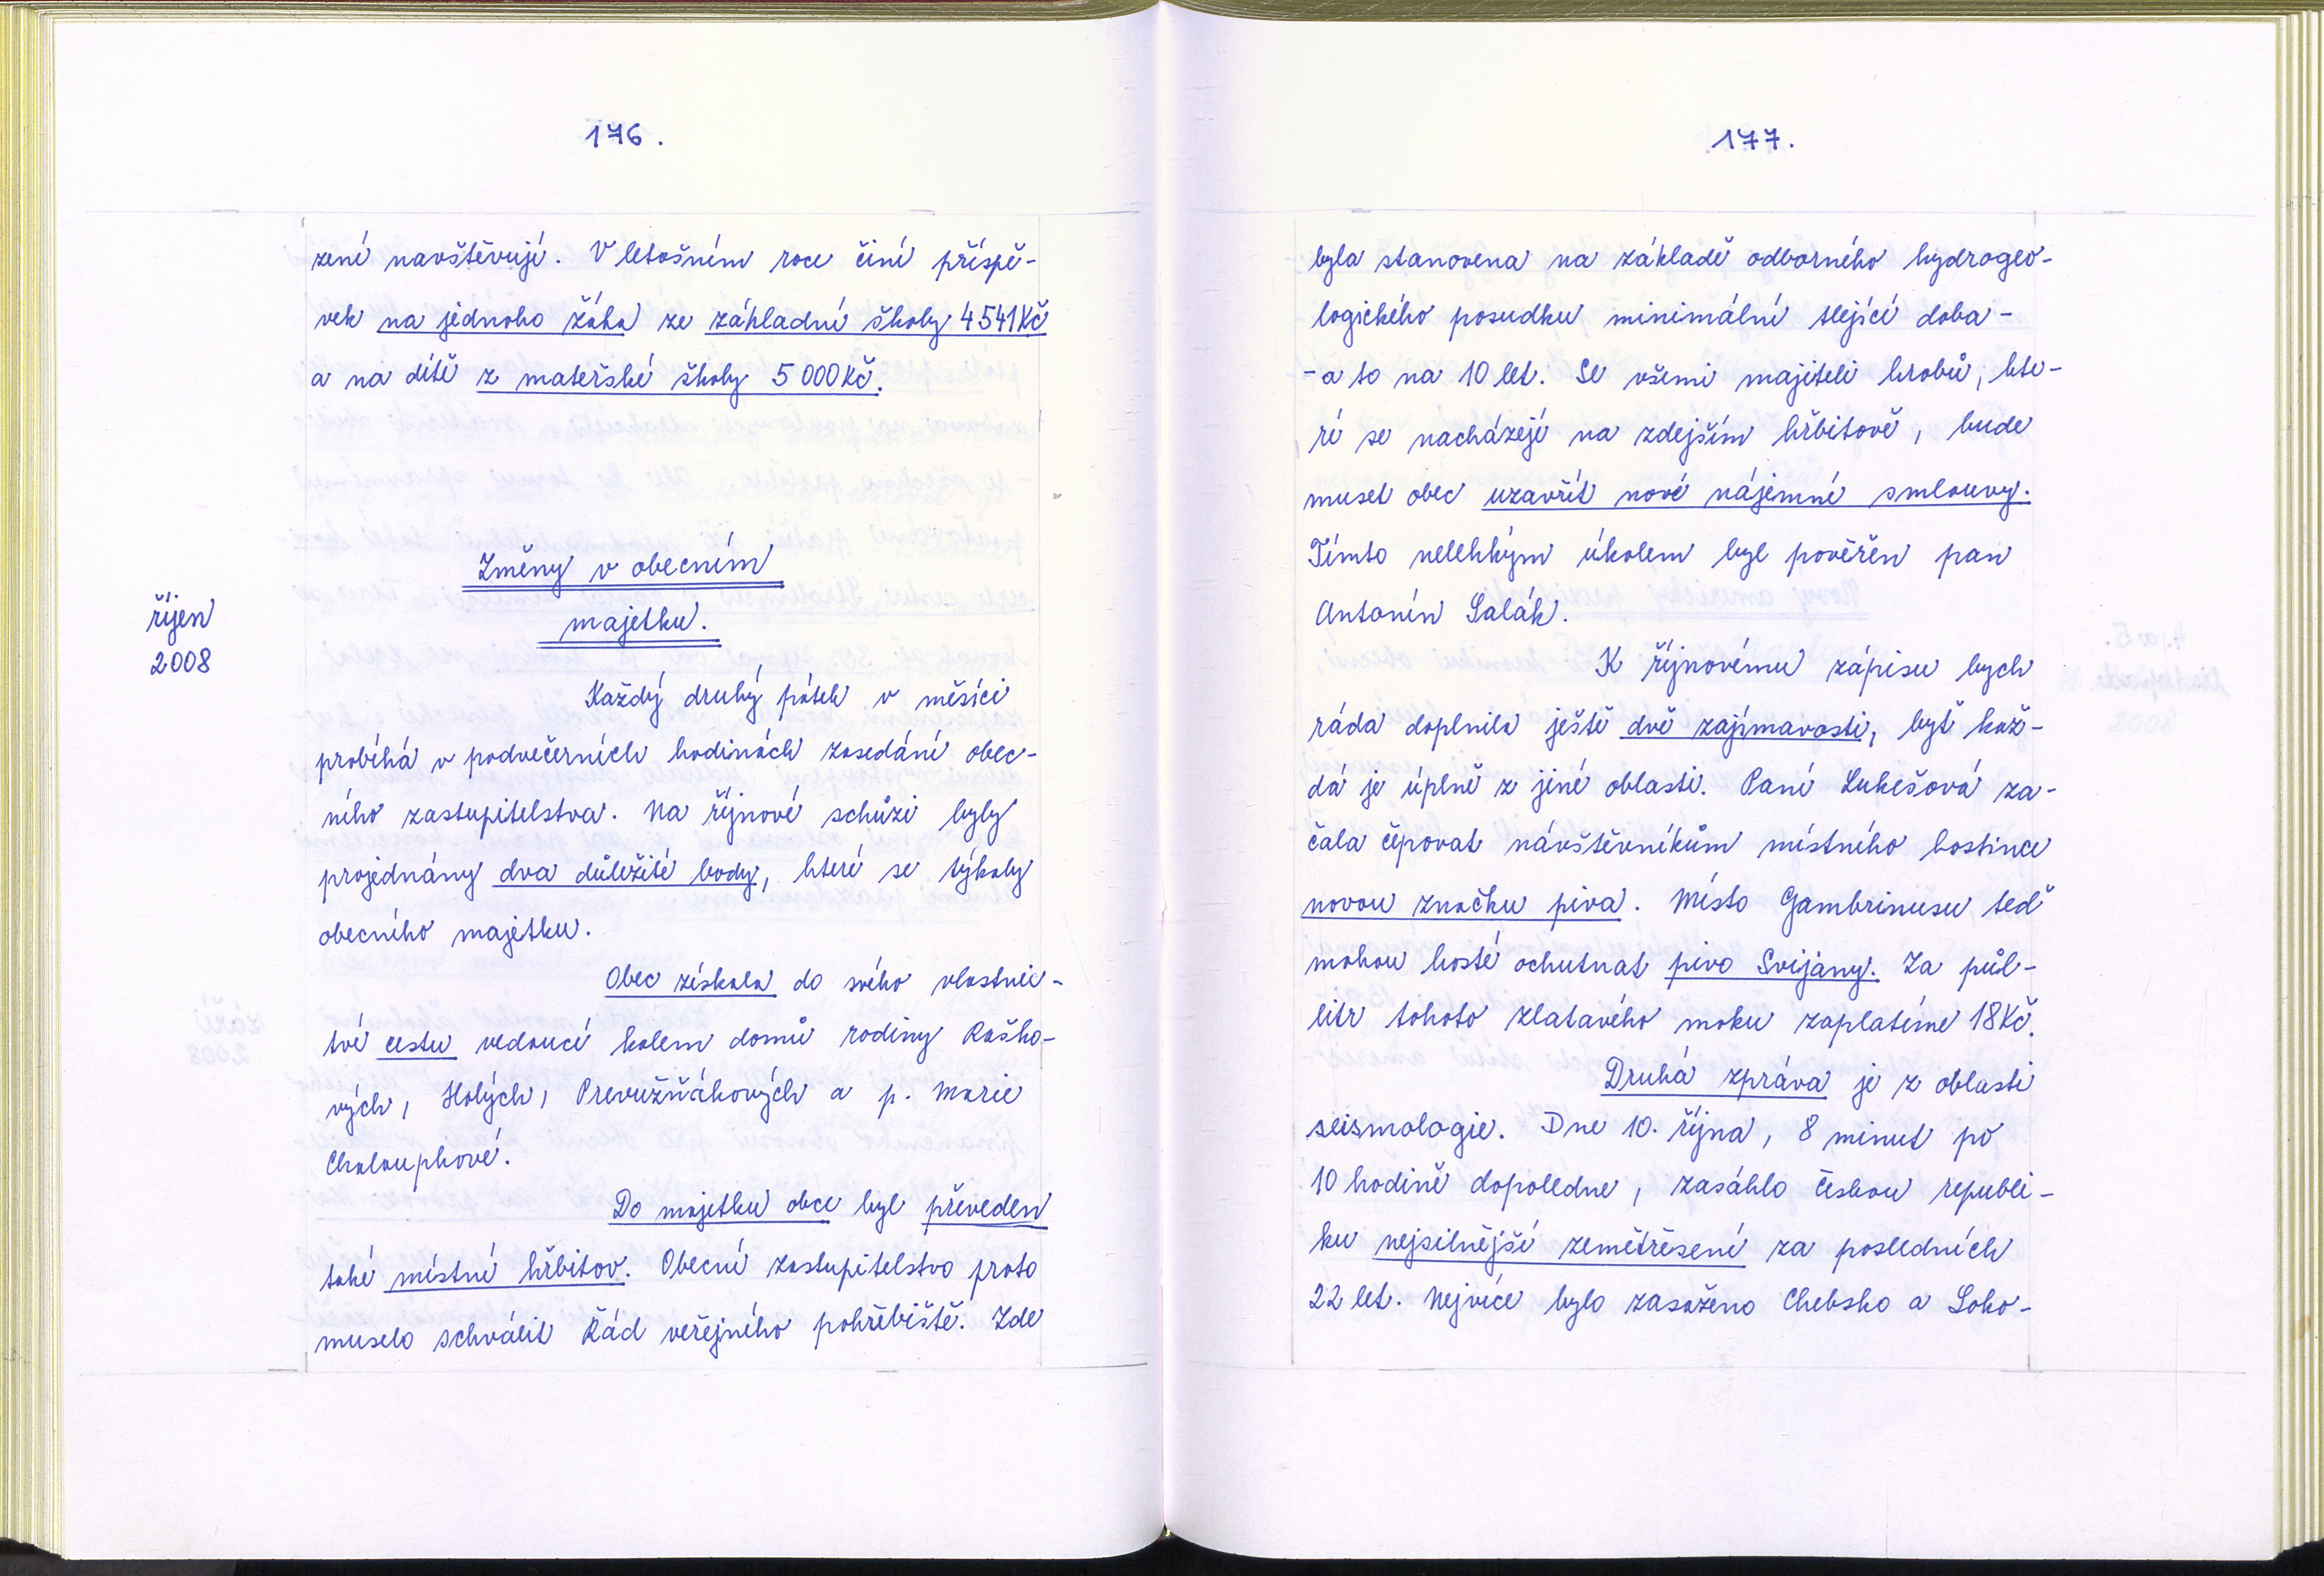 176.
zení navštěvují. V letošním roce činí příspě-
vek na jednoho žáka ze základní školy 4 541 Kč
a na dítě z mateřské školy 5 000 Kč.
říjen
2008
Změny v obecním
majetku.
Každý druhý pátek v měsíci
probíhá v podvečerních hodinách zasedání obec-
ního zastupitelstva. Na říjnové schůzi byly
projednány dva důležité body, které se týkaly
obecního majetku.
Obec získala do svého vlastnic-
tví cestu vedoucí kolem domů rodiny Raško-
vých, Holých, Prevužňákových a p. Marie
Chaloupkové.
Do majetku obce byl převeden
také místní hřbitov. Obecní zastupitelstvo proto
muselo schválit Řád veřejného pohřebiště. Zde
177.
byla stanovena na základě odborného hydrogeo-
logického posudku minimální tlející doba -
- a to na 10 let. Se všemi majiteli hrobů, kte-
ří se nacházejí na zdejším hřbitově, bude
muset obec uzavřít nové nájemné smlouvy.
Tímto nelehkým úkolem byl pověřen pan
Antonín Salák.
K říjnovému zápisu bych
ráda doplnila ještě dvě zajímavosti, byť kaž-
dá je úplně z jiné oblasti. Paní Lukešová za-
čala čepovat návštěvníkům místního hostince
novou značku piva. Místo Gambrinusu teď
mohou hosté ochutnat pivo Svijany. Za půl-
litr tohoto zlatavého moku zaplatíme 18 Kč.
Druhá zpráva je z oblasti
seismologie. Dne 10. října, 8 minut po
10 hodině dopoledne, zasáhlo Českou republi-
ku nejsilnější zemětřesení za posledních
22 let. Nejvíce bylo zasaženo Chebsko a Soko-